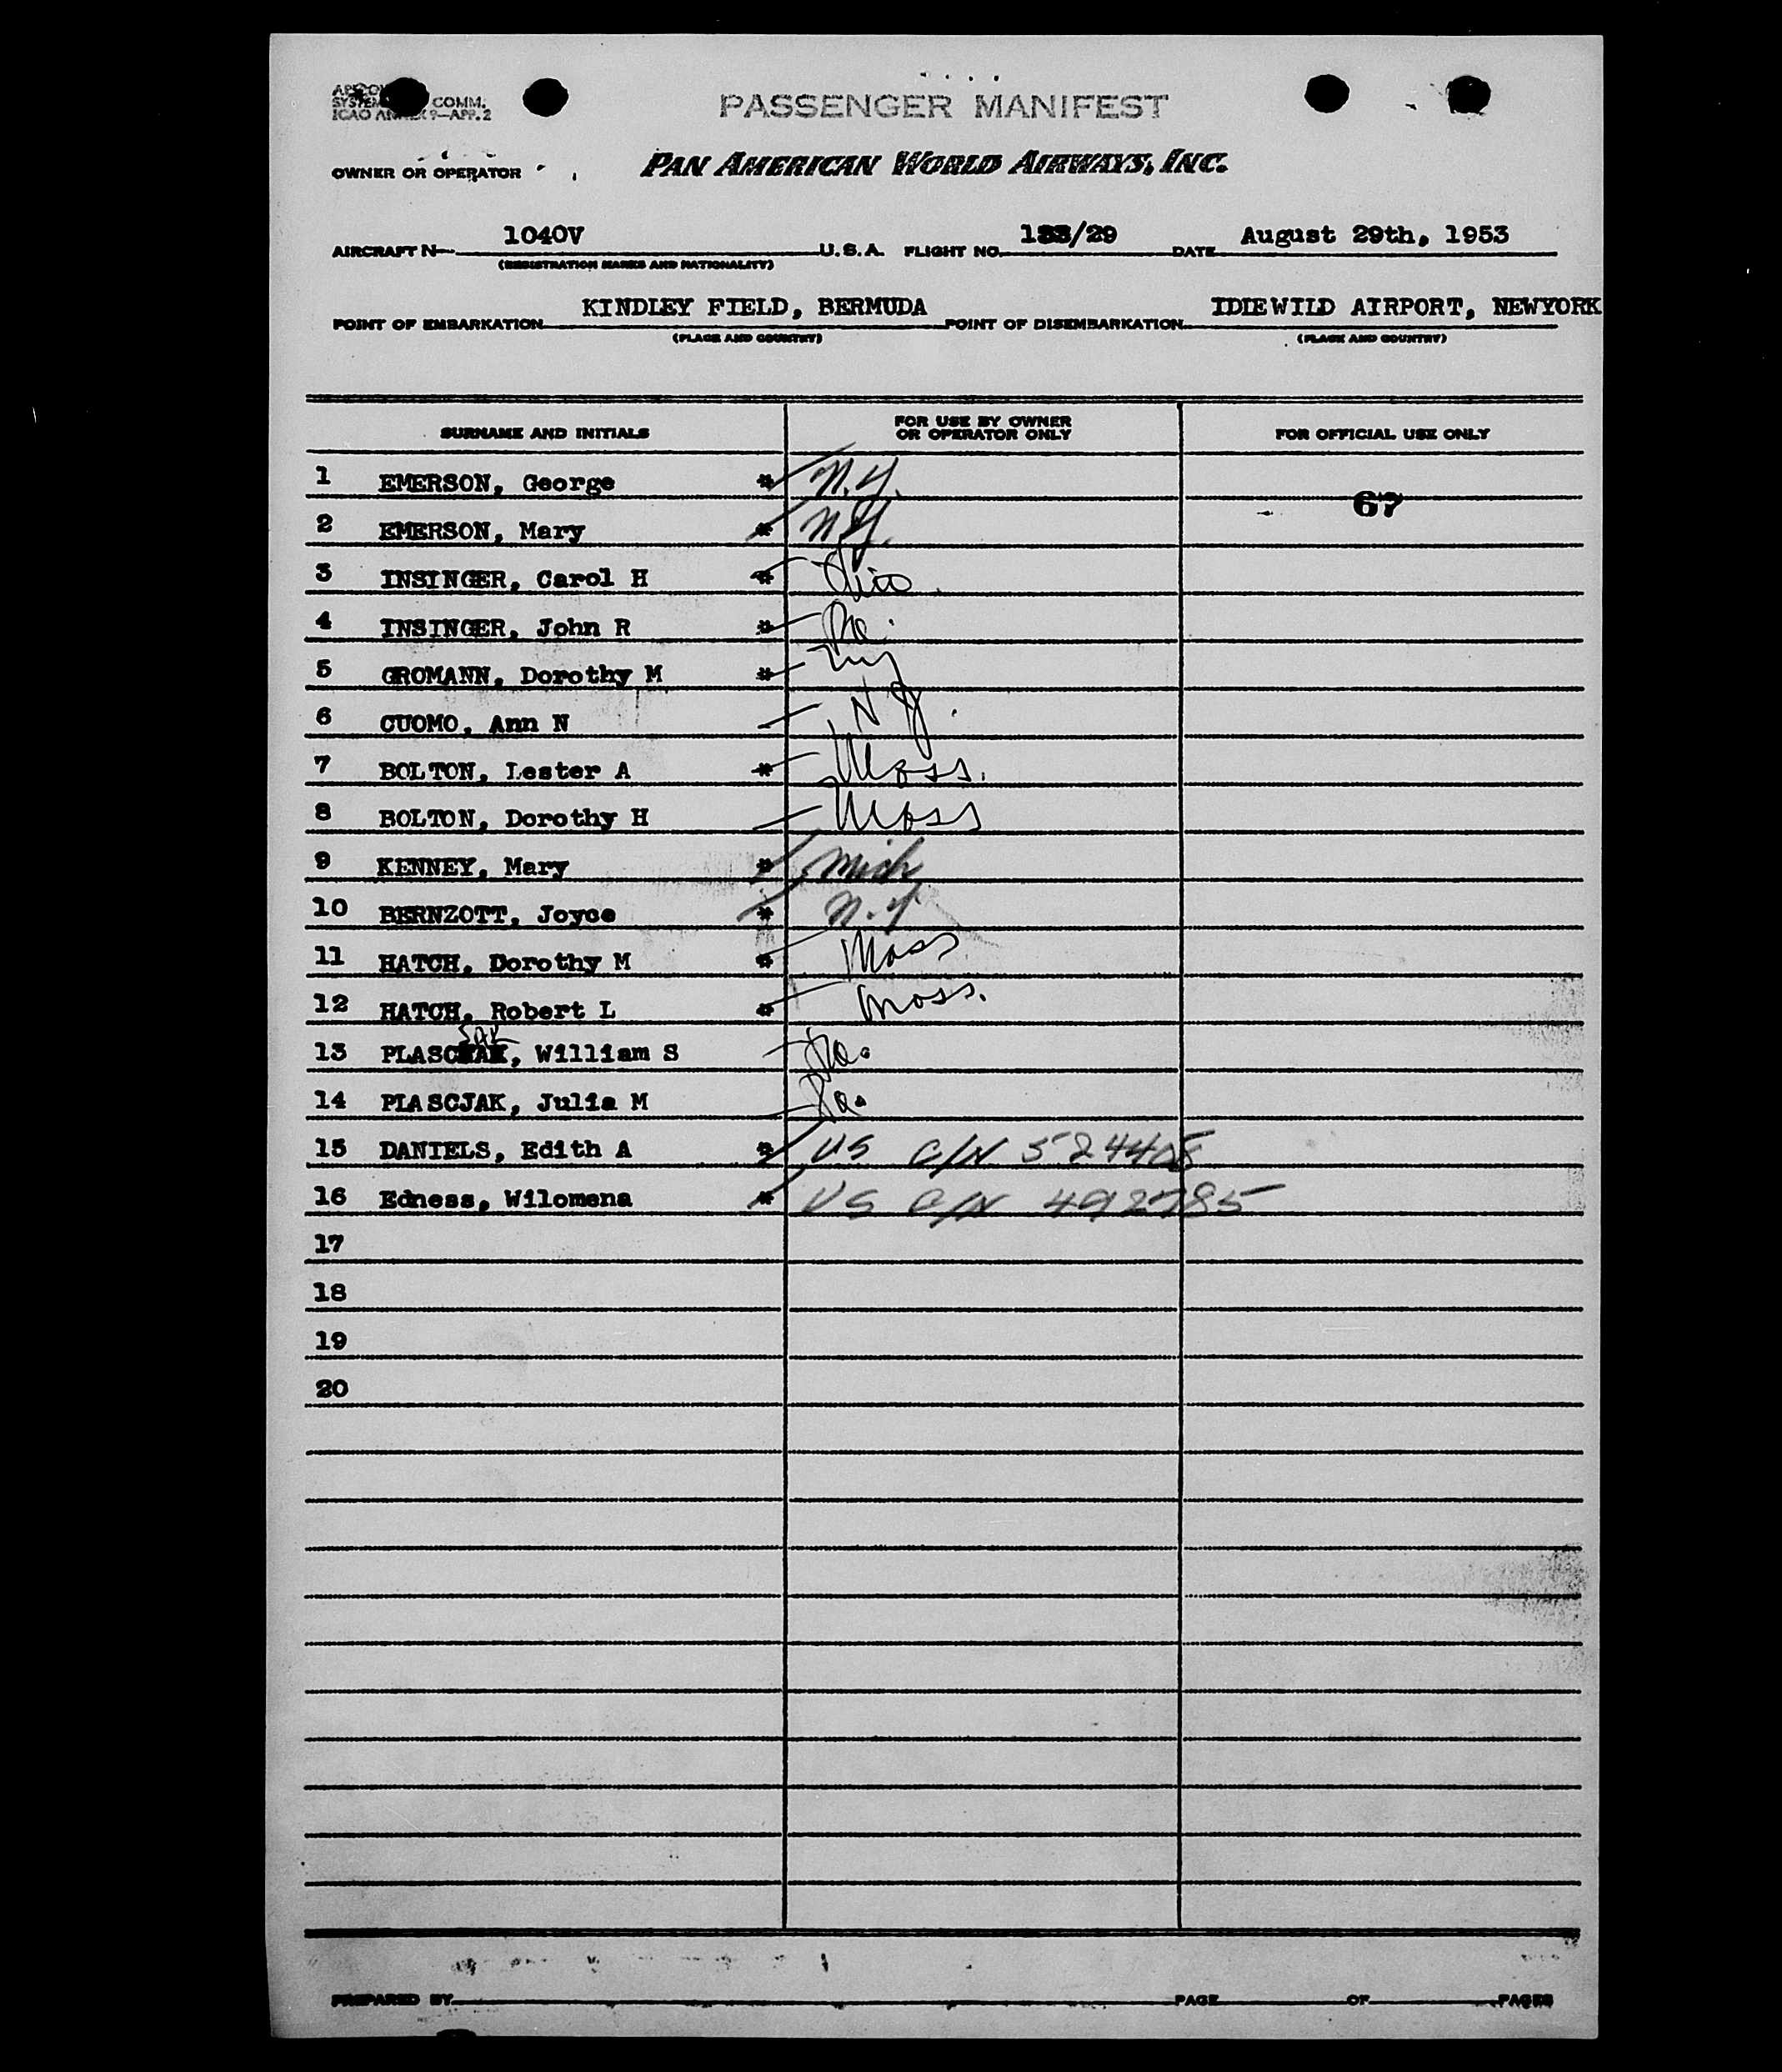 COMM.
ICAO ANNEX 9—APP. 2
PASSENGER MANIFEST
OWNER OR OPERATOR PAN AMERICAN WORLD AIRWAYS, INC.
AIRCRAFT N— 1040V U.S.A. FLIGHT NO. 133/29 DATE August 29th, 1953
(REGISTRATION MARKS AND NATIONALITY)
POINT OF EMBARKATION KINDLEY FIELD, BERMUDA POINT OF DISEMBARKATION IDIEWILD AIRPORT, NEWYORK
(PLACE AND COUNTRY) (PLACE AND COUNTRY)
SURNAME AND INITIALS FOR USE BY OWNER OR OPERATOR ONLY FOR OFFICIAL USE ONLY
1 EMERSON, George * N.Y.
67
2 EMERSON, Mary * N.Y.
3 INSINGER, Carol H *
4 INSINGER, John R * Pa.
5 GROMANN, Dorothy M * NY
6 CUOMO, Ann N - N.J.
7 BOLTON, Lester A * Mass.
8 BOLTON, Dorothy H Mass
9 KENNEY, Mary * Mich
10 BERNZOTT, Joyce * N.Y.
11 HATCH, Dorothy M * Mass
12 HATCH, Robert L * Mass.
13 William S Pa.
14 PLASCJAK, Julia M Pa.
15 DANIELS, Edith A * US C/N 524408
16 Edness, Wilomena * US C/N 492785
17
18
19
20
PREPARED BY PAGE OF PAGES